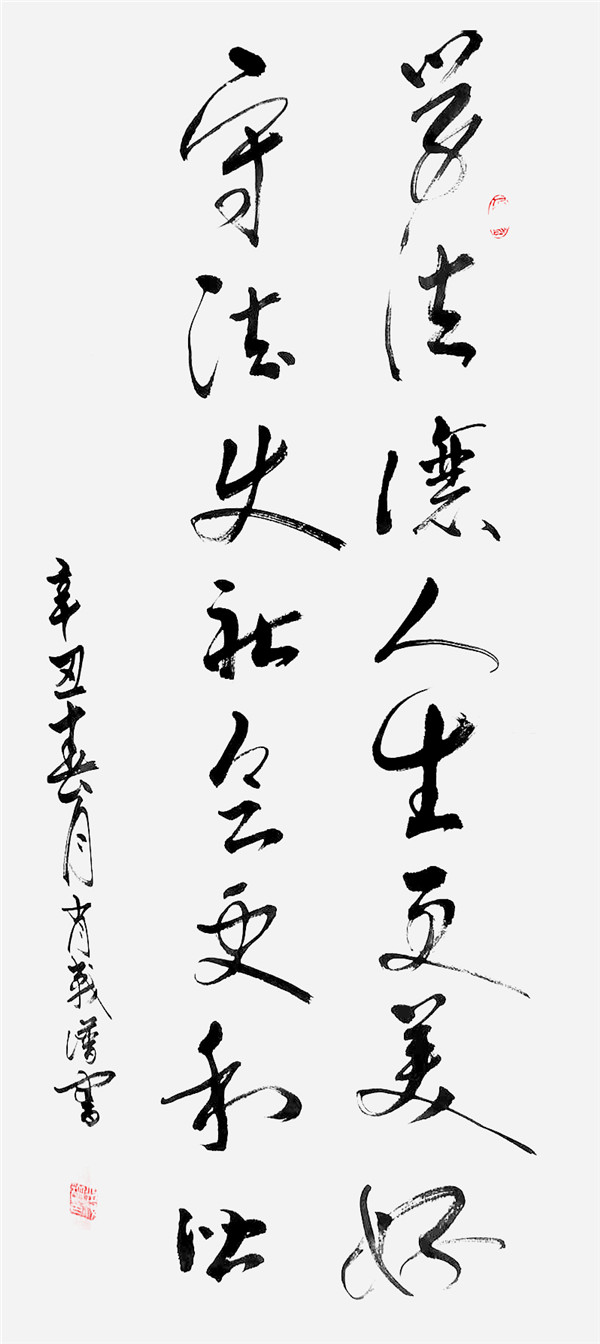 学法讓人生更美好
守法使社会更和谐
辛丑春月肖書